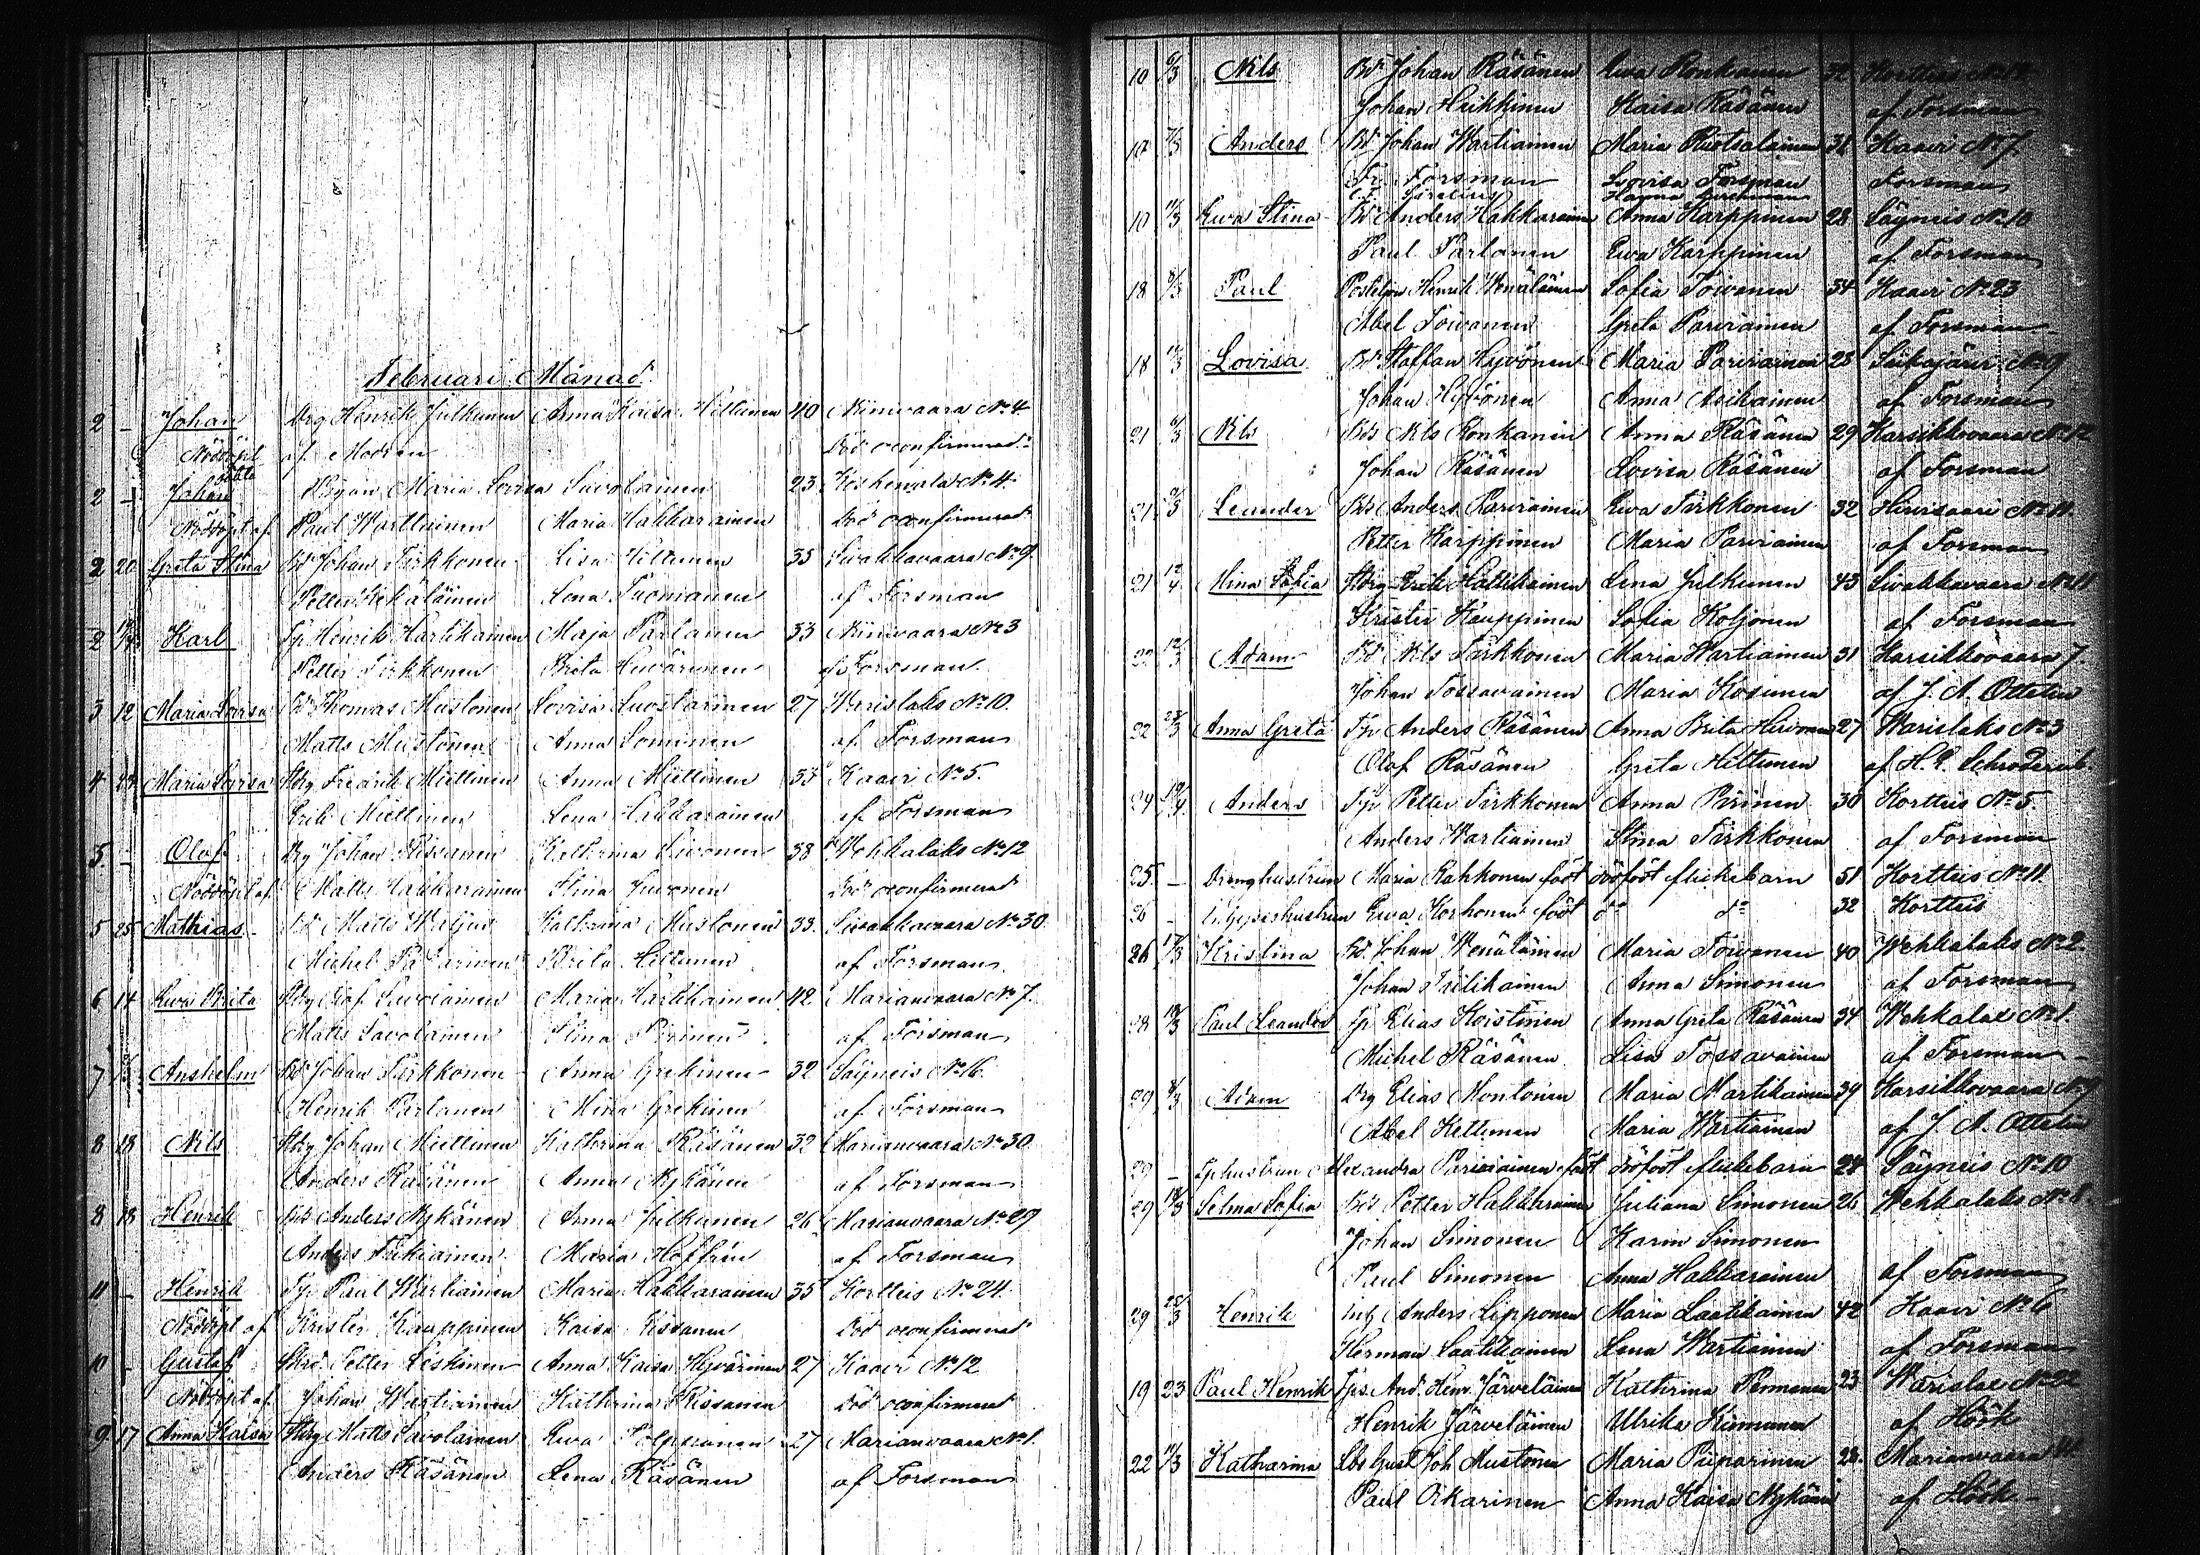 Februari Månad
2 - Johan Drg Henrik Julkunen Anna Kaisa Hiltunen 40 Niinivaara No 4
Nöddöpt af Modren Död oconfirmerad
2 - Johan oäkta Pigan Maria Lovisa Savolainen 23 No 4
Nöddöpt af Paul Wartiainen Maria Hakkarainen Död oconfirmerad
2 20 Greta Stina Bd Johan Tirkkonen Lisa Hiltunen 35 Sivakkavaara No 9
Petter Lena Tuomainen af Forsman
2 Karl Tp Henrik Martikainen Maja Partanen 33 Niinivaara No 3
Petter Tirkkonen Brita Huvärinen af Forsman
3 12 Maria Lovisa Bd Thomas Mustonen Lovisa Luostarinen 27 Warislaks No 10
Matts Mustonen Anna Lominen af Forsman
4 Maria Lovisa Stdrg Fredrik Miettinen Anna Miettinen 33 Kaavi No 5
Erik Miettinen Lena Hakkarainen af Forsman
5 - Olof Drg Johan Rissanen Katharina 38 Wehkalaks No 12
Nöddöpt af Matts Hakkarainen Stina Död oconfirmerad
5 25 Mathias Bd Matts Katharina Mustonen 33 Sivakkavaara No 30
Michel Brita Hiltunen af Forsman
6 14 Ewa Brita Stdrg Olof Savolainen Maria Martikainen 42 Marianvaara No 7
Matts Savolainen Stina Pirinen af Forsman
7 Anshelm Bd Johan Tirkkonen Anna Grekinen 32 Säyneis No 16
Henrik Partanen Mina Grekinen af Forsman
8 18 Nils Stdrg Johan Miettinen Katharina Räsänen 32 Marianvaara No 30
Anders Räsänen Anna Nykänen af Forsman
8 18 Henrik Bds Anders Nykänen Anna Julkunen 26 Marianvaara No 29
Anders Maria Hoffrén af Forsman
11 - Henrik Tp Paul Wartiainen Maria Hakkarainen 35 Kortteis No 24
Nöddöpt af Krister Kauppinen Kaisa Rissanen Död oconfirmerad
10 - Gustaf Petter Leskinen Anna Kaisa Hyvärinen 27 Kaavi No 12
Nöddöpt af Johan Wartiainen Katharina Rissanen Död oconfirmerad
9 17 Anna Kaisa Stdrg Matts Savolainen Ewa Tolppanen 27 Marianvaara No 1
Anders Räsänen Lena Räsänen af Forsman
10 6/3 Nils Bd Johan Räsänen Ewa Ronkanen 32
Johan Heikkinen Kaisa Räsänen af Forsman
10 Anders Bd Johan Wartiainen Maria Ruotsalainen 31 Kaavi No 7
Fr. Forsman Lovisa Forsman Forsman
10 11/3 Ewa Stina Bd Anders Hakkarainen Anna Karppinen 28 Säyneis No 10
Paul Partanen Ewa Karppinen af Forsman
18 Paul Postiljon Henrik Wenäläinen Sofia Toivanen 34 Kaavi No 23
Abel Toivanen Greta Parviainen af Forsman
18 11/3 Lovisa Bd Staffan Hyvönen Maria Parviainen 28 Siikajärvi No 9
Johan Hyvönen Anna Asikainen af Forsman
21 6/3 Nils Bds Nils Ronkanen Anna Räsänen 29 Karsikkovaara No 12
Johan Räsänen Lovisa Räsänen af Forsman
21 Leander Bds Anders Parviainen Ewa Tirkkonen 32 Hirvisaari No 11
Petter Karppinen Maria Parviainen af Forsman
21 12/4 Mina Sofia Stdrg Erik Lena Julkunen 43 Sivakkavaara No 11
Krister Kauppinen Sofia Koljonen af Forsman
22 12/3 Adam Bd Nils Tirkkonen Maria Wartiainen 31 Karsikkovaara 7
Johan Tossavainen Maria Kosunen af J. A. Ottelin
22 Anna Greta Tp Anders Räsänen Anna Brita Hirvonen 27 Warislaks No 3
Olof Räsänen Greta Hiltunen af H. G. Schroderus
24 Anders Tp Petter Tirkkonen Anna Pirinen 30 Kortteis No 5
Anders Wartiainen Stina Tirkkonen af Forsman
25 - Drenghustrun Maria Rahkonen födt dödfödt flickebarn 51 Kortteis No 11
26 - Ewa Korhonen födt do do 32 Kortteis
26 17/3 Kristina Bd Johan Wenäläinen Maria Toivanen 40 Wehkalaks No 2
Johan Anna Simonen af Forsman
28 18/3 Paul Leander Tp Elias Koistinen Anna Greta Räsänen 34 Wehkalax No 1
Michel Räsänen Lisa Tossavainen af Forsman
29 Adam Drg Elias Montonen Maria Martikainen 39 Karsikkovaara No 9
Abel Kettunen Maria Wartiainen af J. A. Ottelin
29 - Tphustrun Alexandra Parviainen födt dödfödt flickebarn 24 Säyneis No 10
29 18/3 Selma Sofia Bds Petter Hakkarainen Juliana Simonen 26 Wehkalaks No 8
Johan Simonen Karin Simonen
Paul Simonen Anna Hakkarainen af Forsman
29 25/3 Henrik Anders Lipponen Maria Laatikainen 42 Kaavi No 6
Herman Laatikainen Lena Wartiainen af Forsman
19 23 Paul Henrik Tps And. Henr. Järveläinen Kathrina Pennanen 23 Warislax No 22
Henrik Järveläinen Ulrika Kinnunen af Höök
22 11/3 Katharina Lbs Gust. Joh. Mustonen Maria Piiparinen 28 Marianvaara
Paul Oikarinen Anna Kaisa Nykänen af Höök